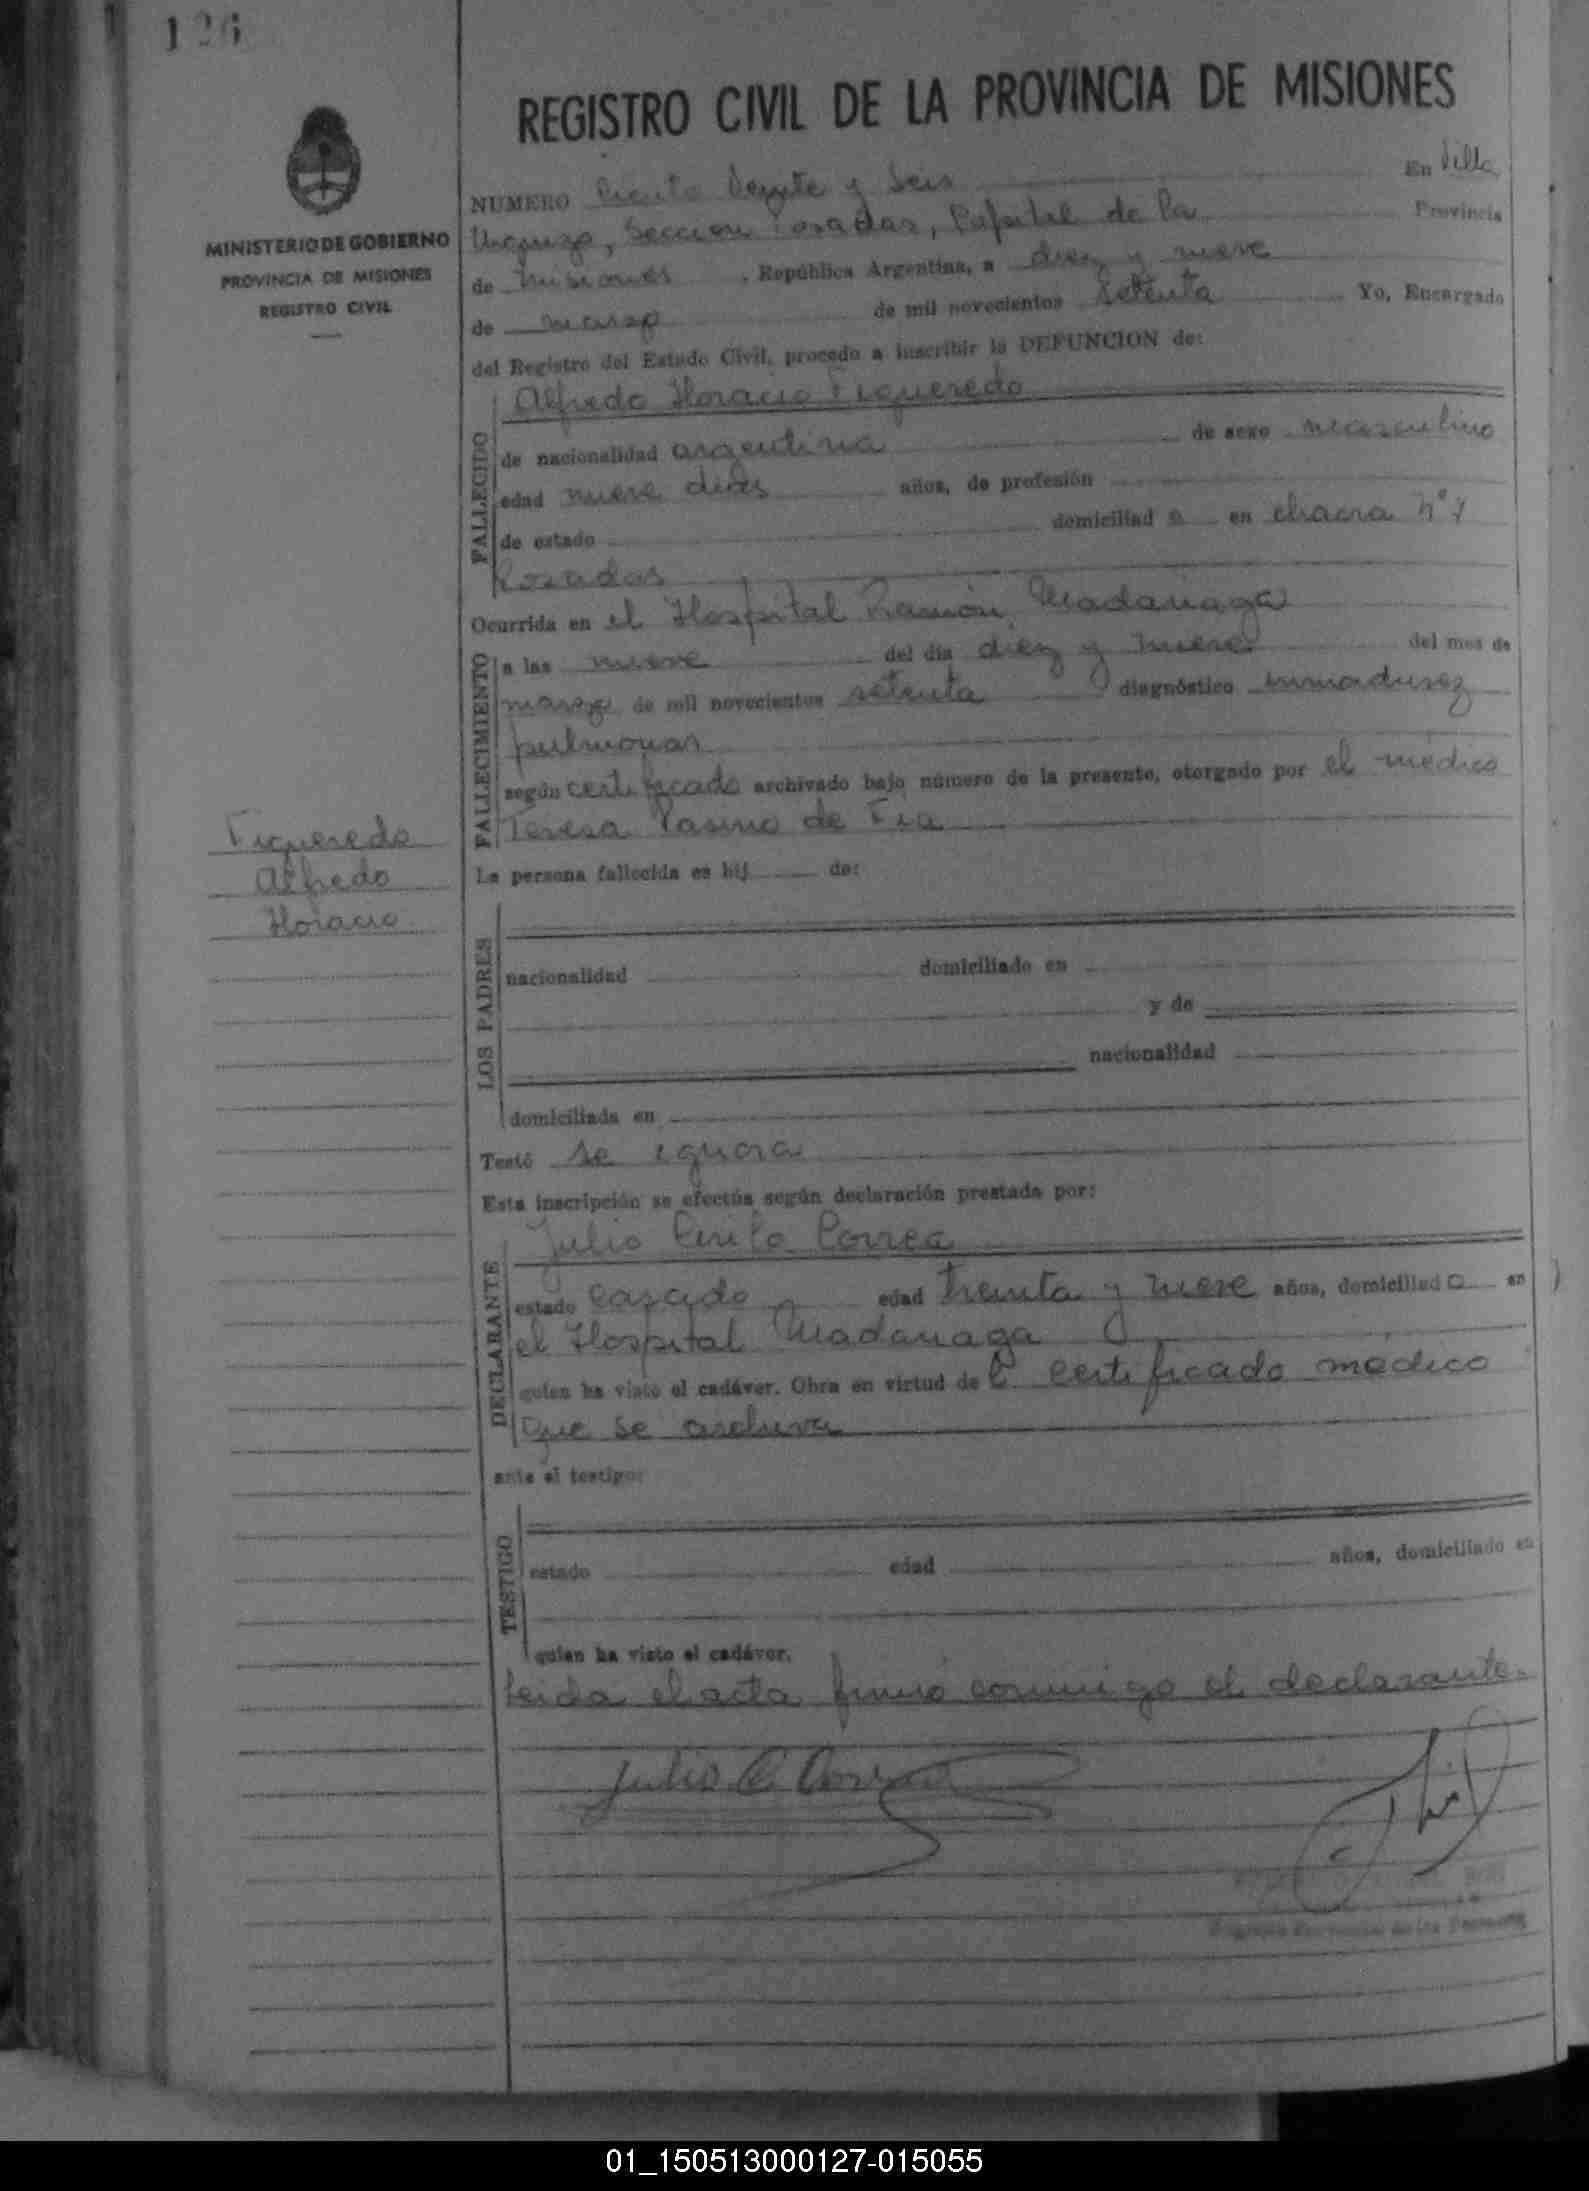 126
MINISTERIO DE GOBIERNO
PROVINCIA DE MISIONES
REGISTRO CIVIL
Figueredo
Alfredo
Horacio
REGISTRO CIVIL DE LA PROVINCIA DE MISIONES
NUMERO Ciento Veinte y Seis En Villa
Urquiza, Seccion Posadas, Capital de la Provincia
de Misiones, República Argentina, a diez y nueve
de marzo de mil novecientos setenta Yo, Encargado
del Registro del Estado Civil, procedo a inscribir la DEFUNCION de:
FALLECIDO
Alfredo Horacio Figueredo
de nacionalidad argentina de sexo masculino
edad nueve dias años, de profesión
de estado domiciliad o en chacra Nº
Posadas
Ocurrida en el Hospital Ramón Madariaga
FALLECIMIENTO
a las nueve del día diez y nueve del mes de
marzo de mil novecientos setenta diagnóstico inmadurez
pulmonar
según certificado archivado bajo número de la presente, otorgado por el médico
Teresa de
La persona fallecida es hij de:
LOS PADRES
nacionalidad domiciliado en
y de
nacionalidad
domiciliada en
Testó se ignora
Esta inscripción se efectúa según declaración prestada por:
DECLARANTE
Julio Cirilo Correa
estado casado edad treinta y nueve años, domiciliad o en
el Hospital Madariaga
quien ha visto el cadáver. Obra en virtud de certificado médico
que se archiva
ante el testigo:
TESTIGO
estado edad años, domiciliado en
quien ha visto el cadáver.
Leida el acta firmó conmigo el declarante.
Julio C. Correa
01_150513000127-015055